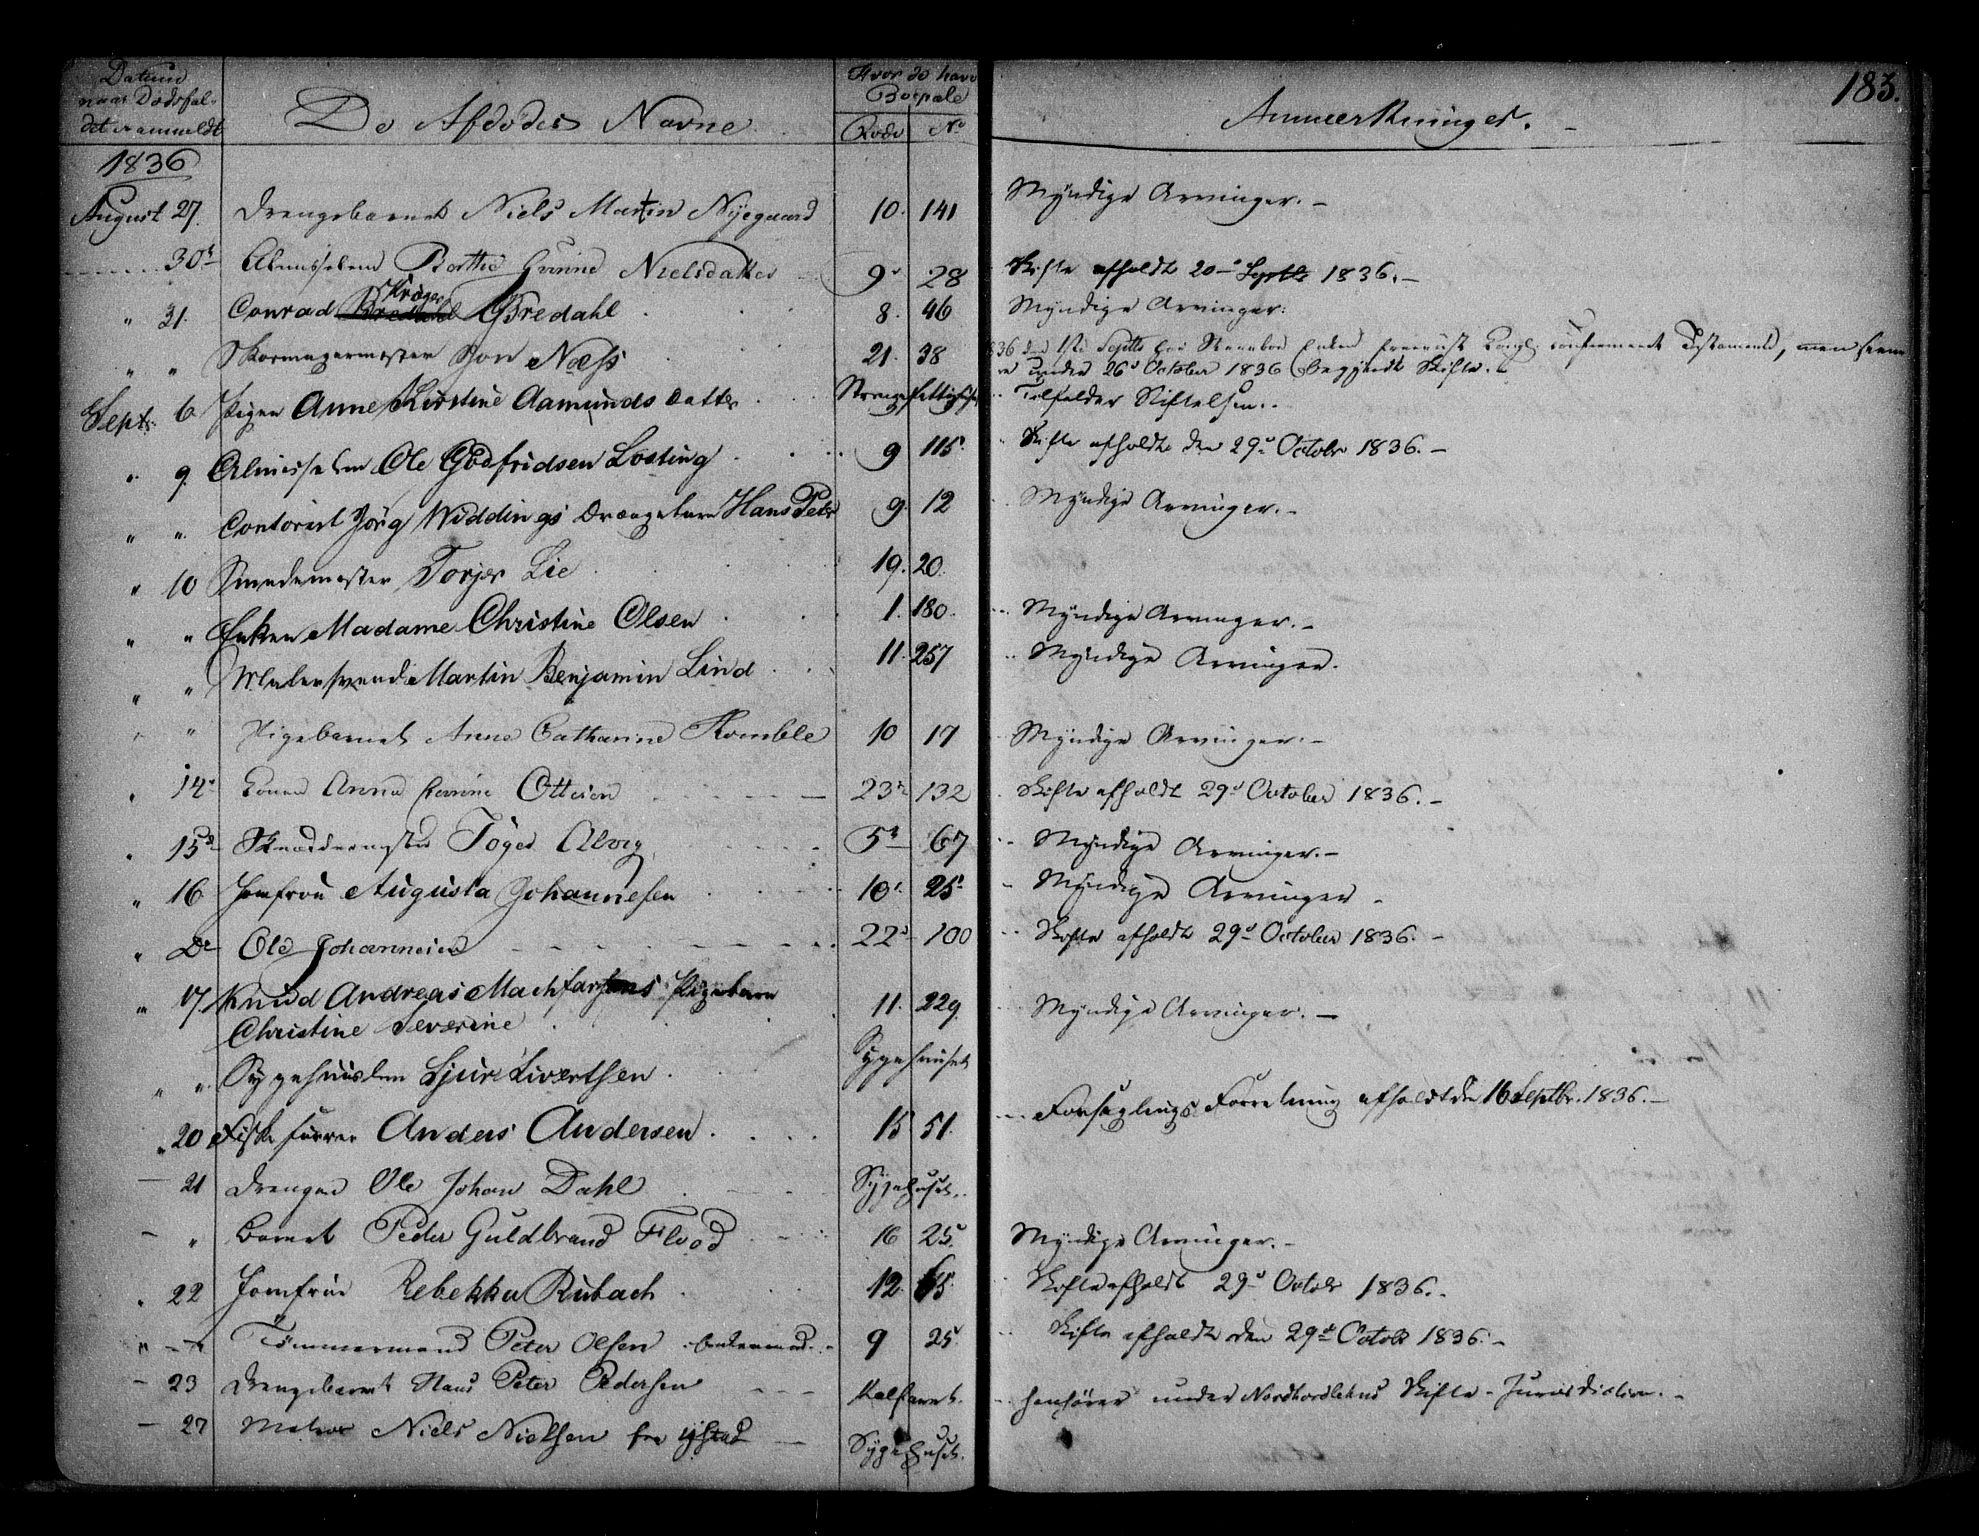 183.
Datum naar Dødsfaldet er anmeldt
De Afdødes Navne
Hvor de have Boepæle
Rode No
Anmerkninger.
1836
August 27. Drengebarnet Niels Martin Nyegaard 10. 141 Myndige Arvinger. –
30t Almisselem Nielsdatter 9 28 Skifte afholdt 20 Septbr 1836. –
" 31. Conrad Krøger Bredahl 8. 46 Myndige Arvinger.
" " Skomagermester Jon Næss 21. 38 Testamente, men
under 26d October 1836 begyndt Skifte.
Septr 6 Pigen Anne Kirstine Aamunds Datter Tilfalder Stiftelsen.
" 9. Almisselem Ole Godfridsen Losting 9 115 Skifte afholdt den 29d Octobr 1836. –
" " Contorist Jørg Widdings Drængebarn Hans Peter 9. 12 Myndige Arvinger. –
" 10 Smedemester Torjer Lie 19. 20.
" " Enken Madame Christine Olsen 1. 180. Myndige Arvinger. –
" " Malersvend Martin Benjamin Lind 11. 257 Myndige Arvinger.
" " Pigebarnet Anne Catharine Kramble 10 17 Myndige Arvinger. –
" 14 Konen Anna Ottesen 23 132 Skifte afholdt 29d October 1836. –
" 15d Skræddermester Tøger Alvig 5 67 Myndige Arvinger. –
" 16 Jomfrou Augusta Johannesen 10 25 Myndige Arvinger
" Do Ole Johannesen 22 100 Skifte afholdt 29d October 1836. –
" 17. Knud Andreas Pigebarn
Christine Severine 11. 229. Myndige Arvinger. –
" " Sygehuuslem Sjur Sivertsen Sygehuuset
Forseglings Forretning afholdt den 16 Septbr. 1836. –
" 20 Fiskefører Anders Andersen 15 51.
– 21 Drengen Ole Johan Dahl Sygehuset.
– " Barnet Peder Guldbrand Flood 16 25. Myndige Arvinger. –
" 22 Jomfrue Rebekka Rubach 12. 65. Skifte afholdt 29d Octobr 1836.
" – " Tømmermand Peter Olsen 9 25 Skifte afholdt den 29d Octobr 1836. –
– 23 Drengebarnet Hans Peter Pedersen Kalfaret. henhører under Nordhordlehns Skifte-Jurisdiction. –
– 27 Matros Niels Nielsen fra Ystad Sygehuset.